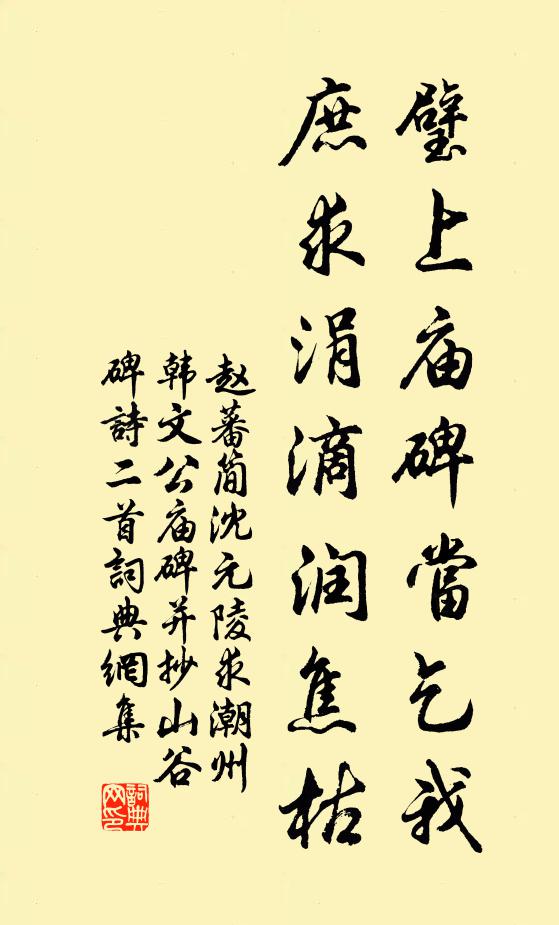 璧上庙碑當乞我
庶求涓滴润焦枯
赵蕃简沈元陵求潮州
韩文公庙碑并抄山谷
碑詩二首詞典網集
詞典网印